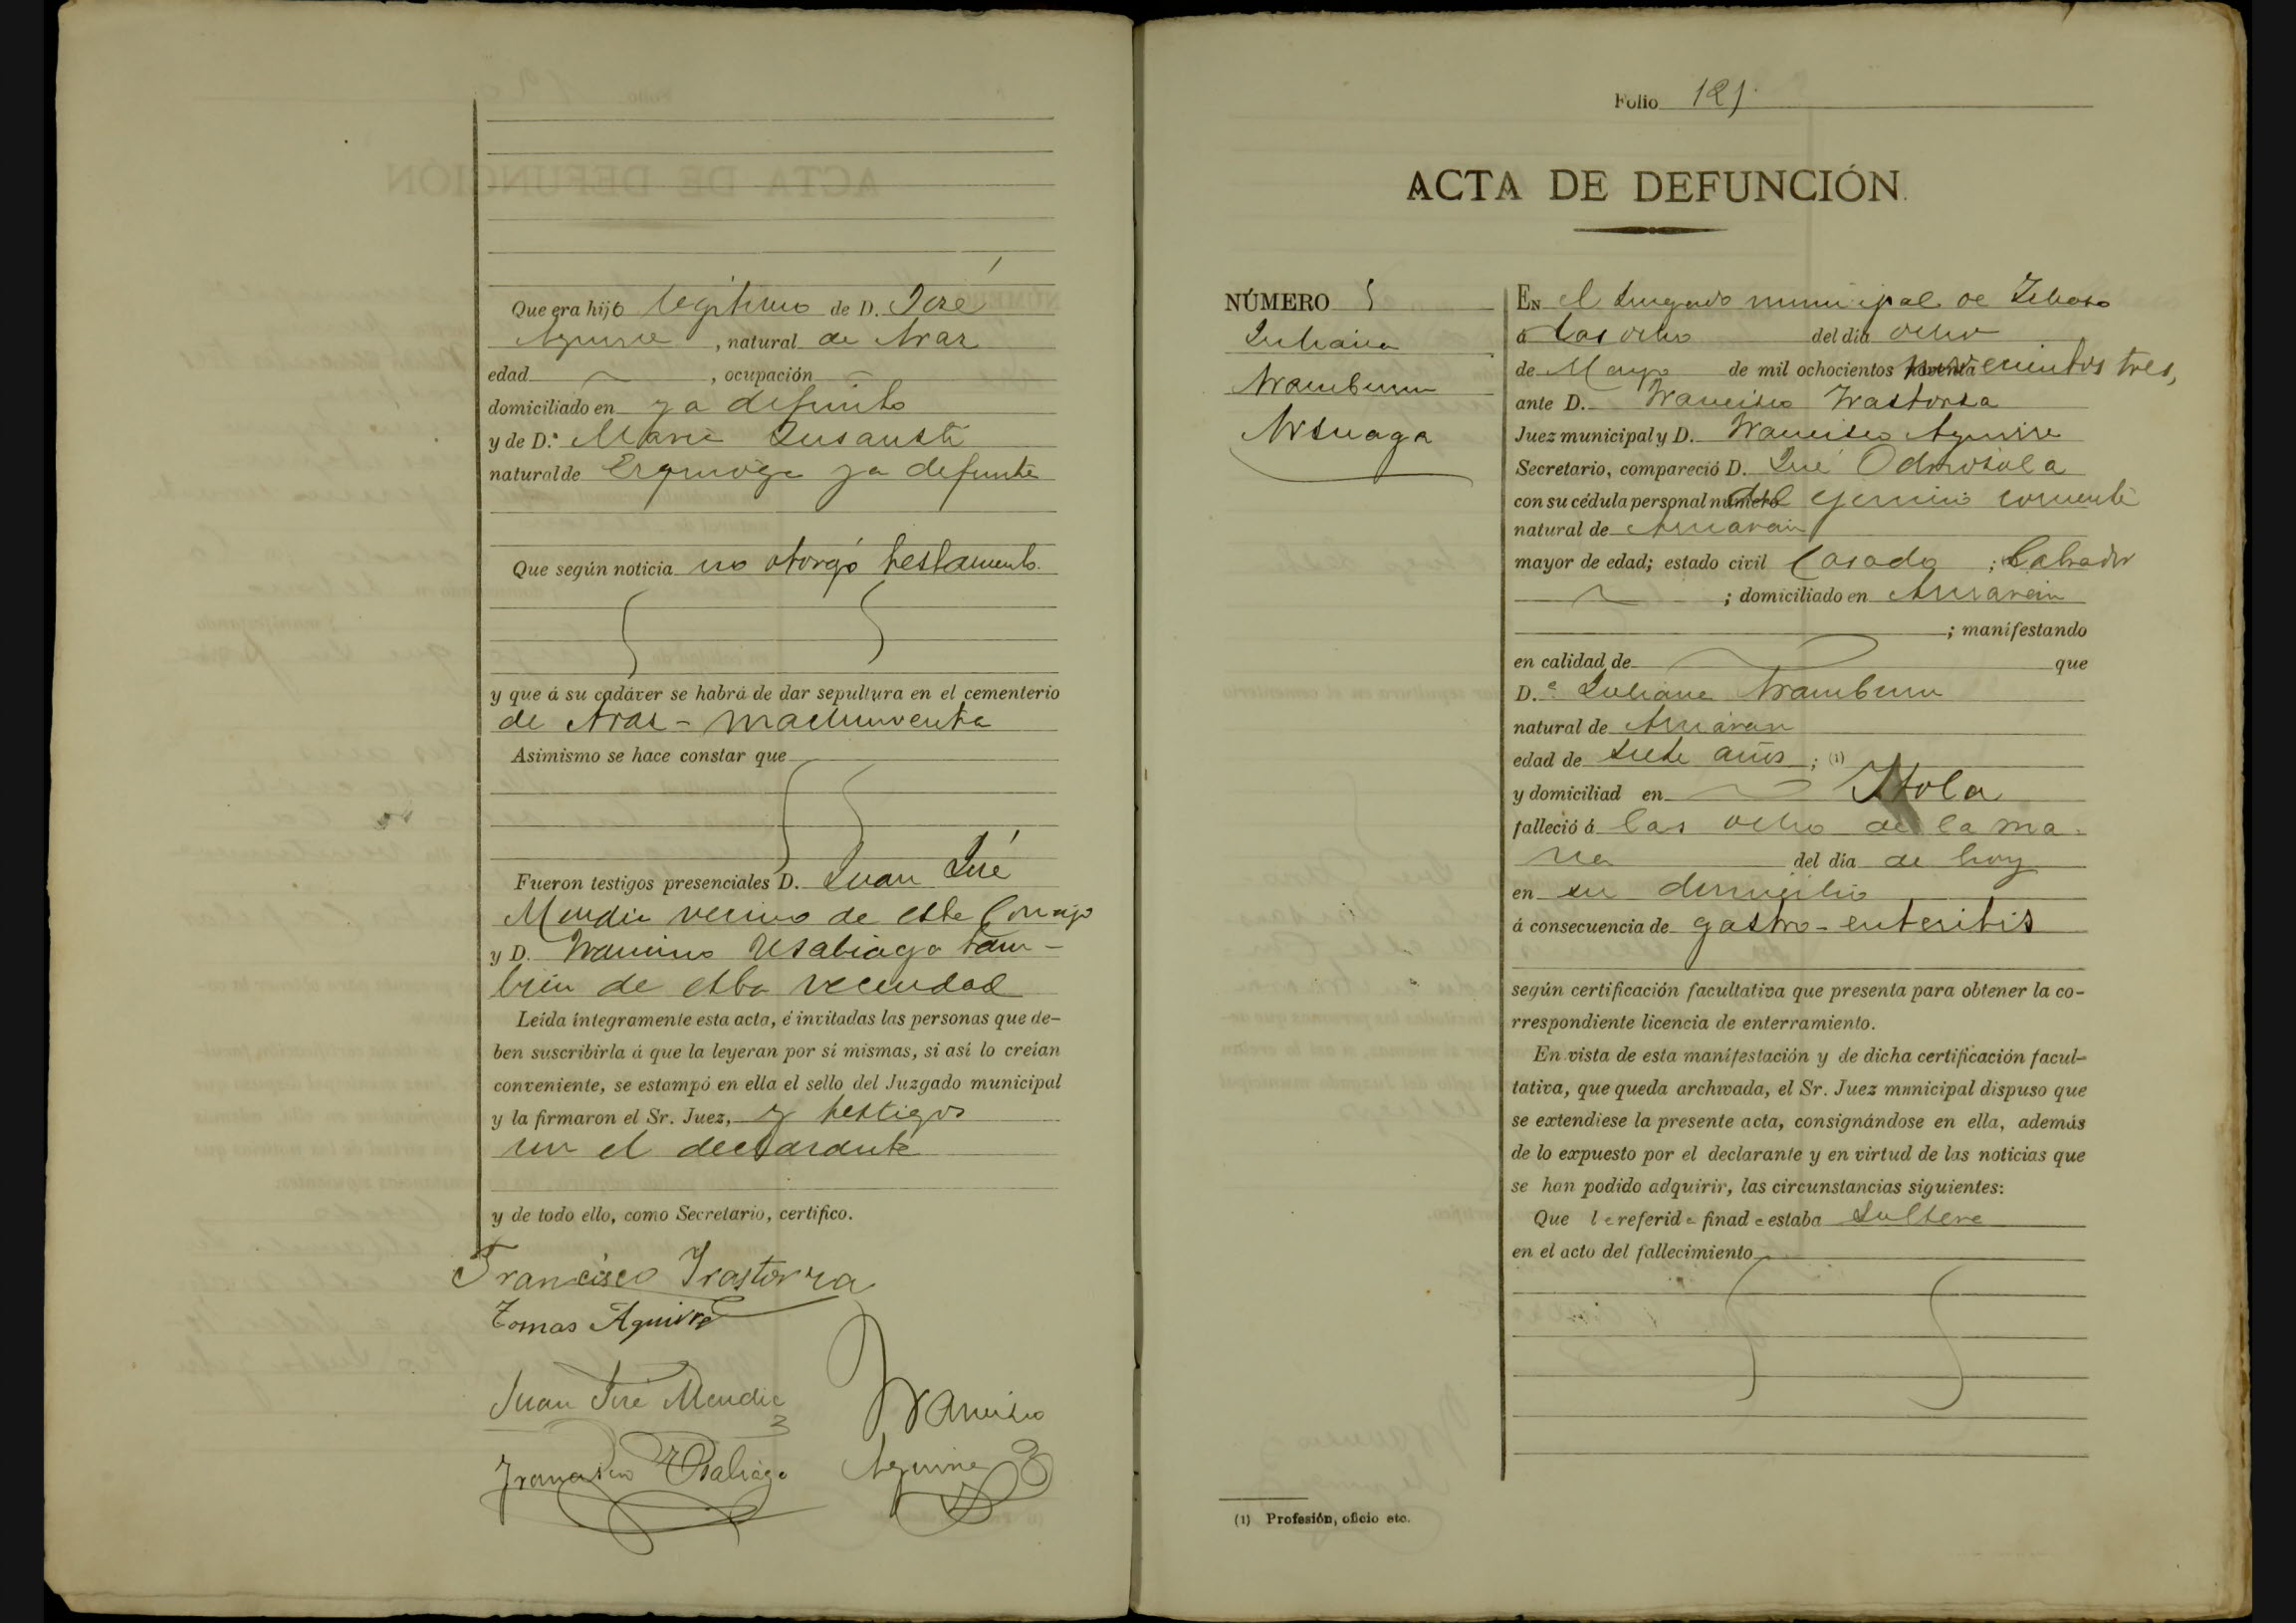 Que era hijo legitimo de D. José
Aguirre, natural de Araz
edad, ocupación
domiciliado en ya difunto
y de D.ª Maria Susausti
natural de Ezquioga ya defunta
Que según noticia no otorgó testamento.
y que á su cadáver se habrá de dar sepultura en el cementerio
de Araz - machinventa
Asimismo se hace constar que
Fueron testigos presenciales D. Juan José
Mendia vecino de este Concejo
y D. Francisco Usabiaga tam-
bién de esta vecindad
Leída íntegramente esta acta, é invitadas las personas que de-
ben suscribirla á que la leyeran por sí mismas, si así lo creían
conveniente, se estampó en ella el sello del Juzgado municipal
y la firmaron el Sr. Juez, y testigos
con el declarante
y de todo ello, como Secretario, certifico.
Francisco Irastorza
Tomas Aguirre
Juan José Mendia
Francisco
Francisco Usabiaga
Aguirre
Folio 121
ACTA DE DEFUNCIÓN.
NÚMERO 5
Juliana
Aramburu
Arsuaga
EN el Jusgado municipal de
á las ocho del dia ocho
de Mayo de mil ochocientos noventa ecientos tres,
ante D. Francisco Irastorza
Juez municipal y D. Francisco Aguirre
Secretario, compareció D. José Odriosola
con su cédula personal número del ejercicio corriente
natural de Astigarreta
mayor de edad; estado civil Casado; Labrador
; domiciliado en
; manifestando
en calidad de que
D.ª Juliana Aramburu
natural de
edad de siete años; (1)
y domiciliad en
falleció á las ocho de la ma-
ña del dia de hoy
en su domicilio
á consecuencia de gastro-enteritis
según certificación facultativa que presenta para obtener la co-
rrespondiente licencia de enterramiento.
En vista de esta manifestación y de dicha certificación facul-
tativa, que queda archivada, el Sr. Juez municipal dispuso que
se extendiese la presente acta, consignándose en ella, además
de lo expuesto por el declarante y en virtud de las noticias que
se han podido adquirir, las circunstancias siguientes:
Que la referida finada estaba Soltera
en el acto del fallecimiento
(1) Profesión, oficio etc.